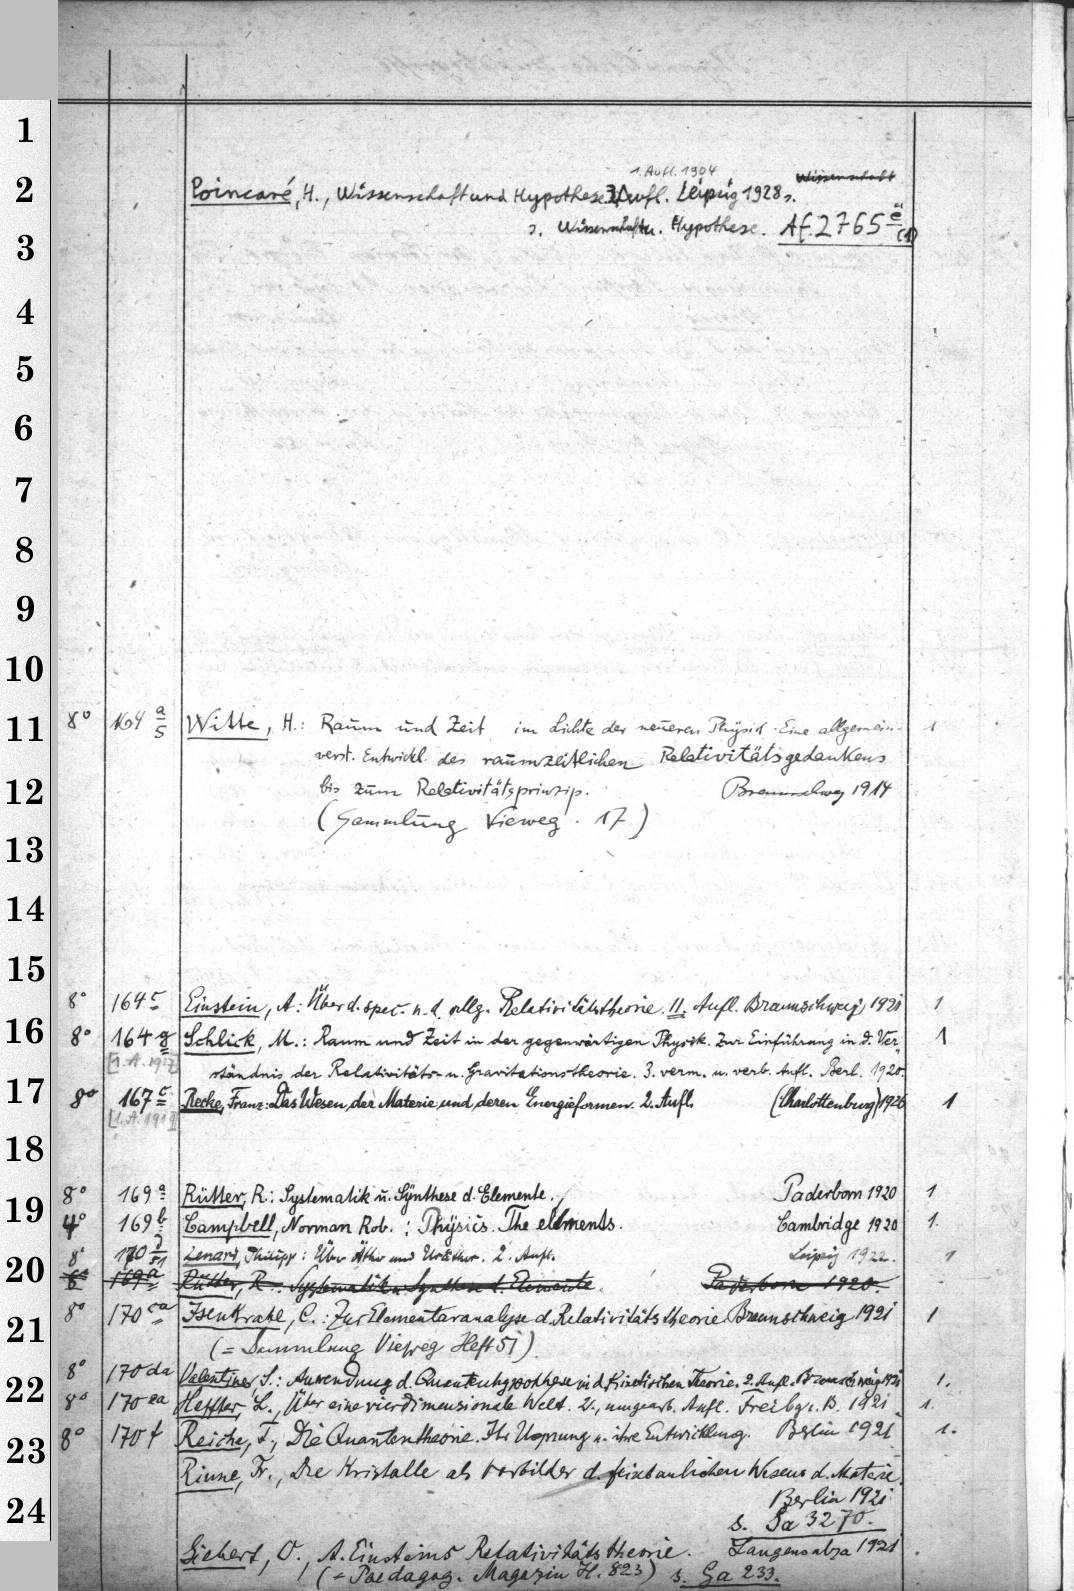 1
2
3
4
5
6
7
8
9
10
11
12
13
14
15
16
17
18
19
20
21
22
23
24
1. Aufl. 1904 Wissenschaft
Poincaré, H., Wissenschaft und Hypothese. Aufl. Leipzig 1928 s.
s. Wissenschaft u. Hypothese. Af. 2765 ë (1)
8° 164 a/5 Witte, H.: Raum und Zeit im Lichte der neueren Physik. Eine allgemein- 1
verst. Entwickl. des raumzeitlichen Relativitätsgedankens
bis zum Relativitätsprinzip. Braunschweig 1914
(Sammlung Vieweg. 17)
8° 164 c Einstein, A: Über d. spec. u. d. allg. Relativitätstheorie. 11. Aufl. Braunschweig 1921 1
8° 164 g Schlick, M.: Raum und Zeit in der gegenwärtigen Physik. Zur Einführung in d. Ver- 1
[1. A. 1917] ständnis der Relativitäts- u. Gravitationstheorie. 3. verm. u. verb. Aufl. Berl. 1920.
8° 167 c Recke, Franz: Das Wesen der Materie und deren Energieformen. 2. Aufl. (Charlottenburg) 1926 1
[1. A. 1919]
8° 169 a Rütter, R.: Systematik u. Synthese d. Elemente. Paderborn 1920 1
4° 169 b Campbell, Norman Rob.: Physics. The elements. Cambridge 1920 1.
8° 170 Lenard, Philipp: Über Äther und Uräther. 2. Aufl. Leipzig 1922. 1
8° 169 a Rütter, R.: Systematik u. Synthese d. Elemente Paderborn 1920.
8° 170 ca Isenkrahe, C.: Zur Elementaranalyse d. Relativitätstheorie Braunschweig 1921 1
(= Sammlung Vieweg Heft 51)
8° 170 da Valentiner, S.: Anwendung d. Quantenhypothese in d. kinetischen Theorie. 2. Aufl. Braunschweig 1921 1.
8° 170 ea Heffter, L., Über eine vierdimensionale Welt. 2., umgearb. Aufl. Freibg. i. B. 1921 1.
8° 170 f Reiche, F., Die Quantentheorie. Ihr Ursprung u. ihre Entwicklung. Berlin 1921 1.
Rinne, Fr., Die Kristalle als Vorbilder d. feinbaulichen Wesens d. Materie.
Berlin 1921
s. Ga 3270.
Siebert, O., A. Einsteins Relativitätstheorie. Langensalza 1921
(= Paedagog. Magazin H. 823) s. Ga 233.